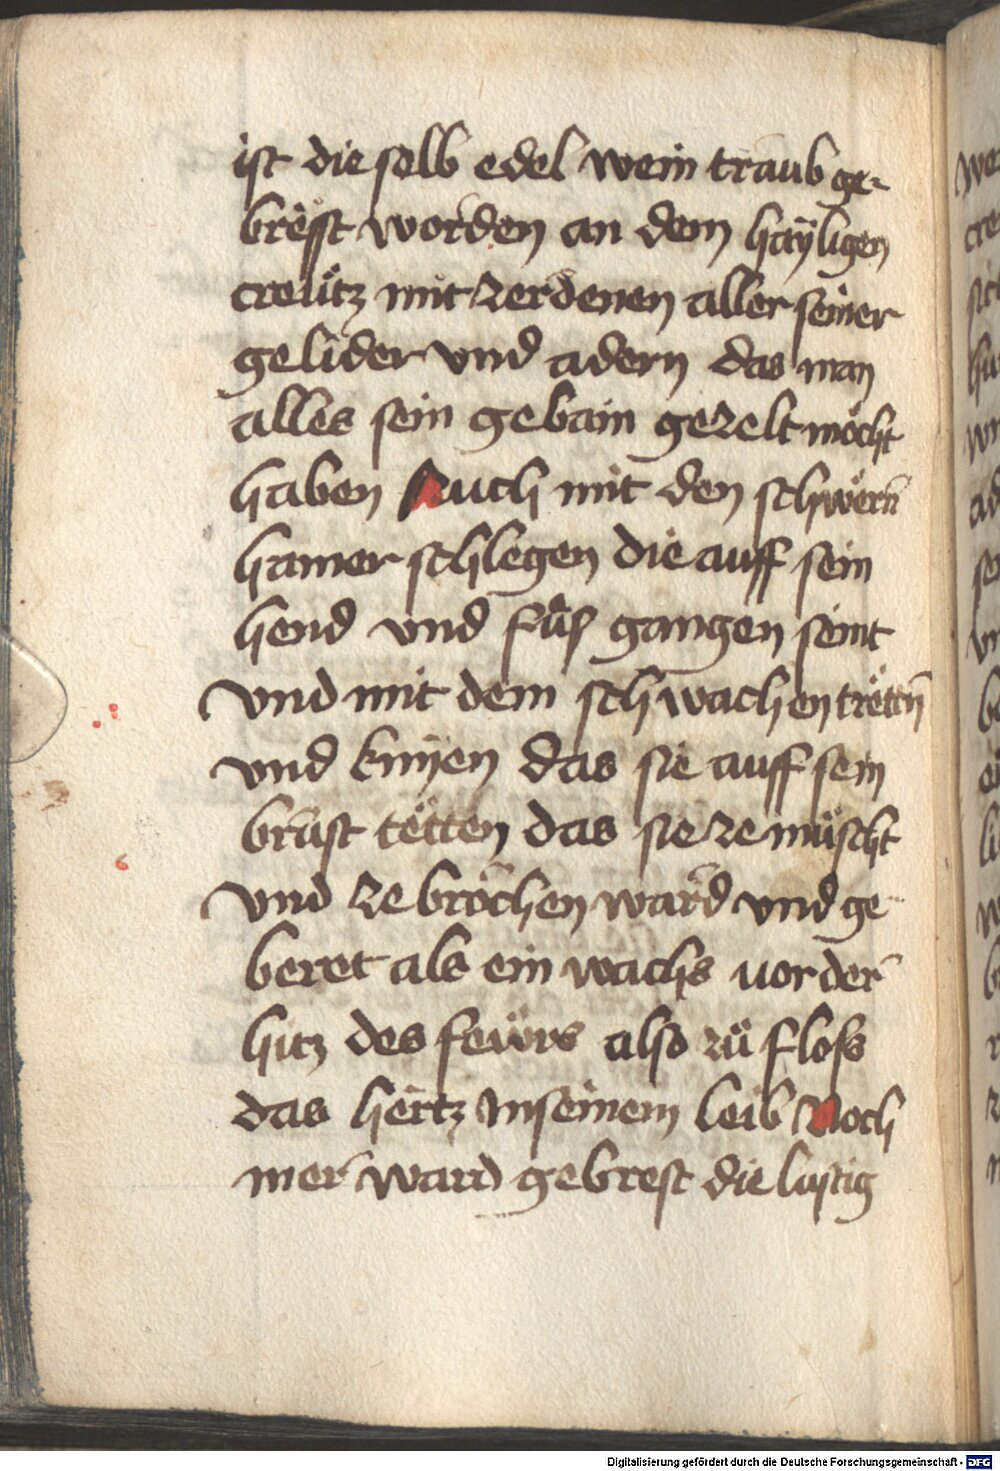 ist die selb edel wein traub ge-
brësst worden an dem häyligen
creütz mit zerdenen aller seiner
gelider vnd adern das man
alles sein gebain gezelt möcht
haben Auch mit den schwërn̄
hamer schlegen die auff sein
hend vnd füß gangen seint
vnd mit dem schwachen trëttn̄
vnd knÿen das sie auff sein
brust tëtten das sie ze müscht
vnd ze brochen ward vnd ge
beret als ein wachs uor der
hitz des feürs also zü floss
das hertz In seinem leib Noch
mer ward gebrest die lustig
Digitalisierung gefördert durch die Deutsche Forschungsgemeinschaft - DFG